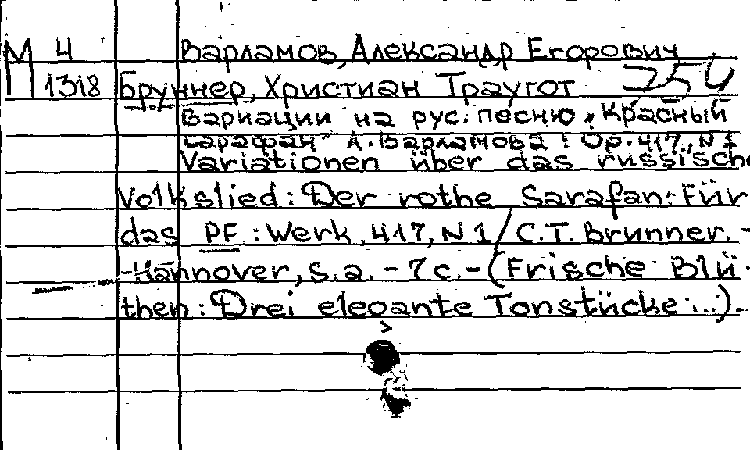 М 4 Варламов, Александр Егорович
1318 Бруннер, Христиан Траугот 254
Вариации на рус. песню „Красный
сарафан“ А. Варламова: Op. 417, N 1
Variationen über das russische
Volkslied: Der rothe Sarafan: Für
das PF: Werk. 417, N 1 / C.T. Brunner. -
- Hannover, s.a. - 7 c. - (Frische Blü-
then: Drei elegante Tonstücke...).